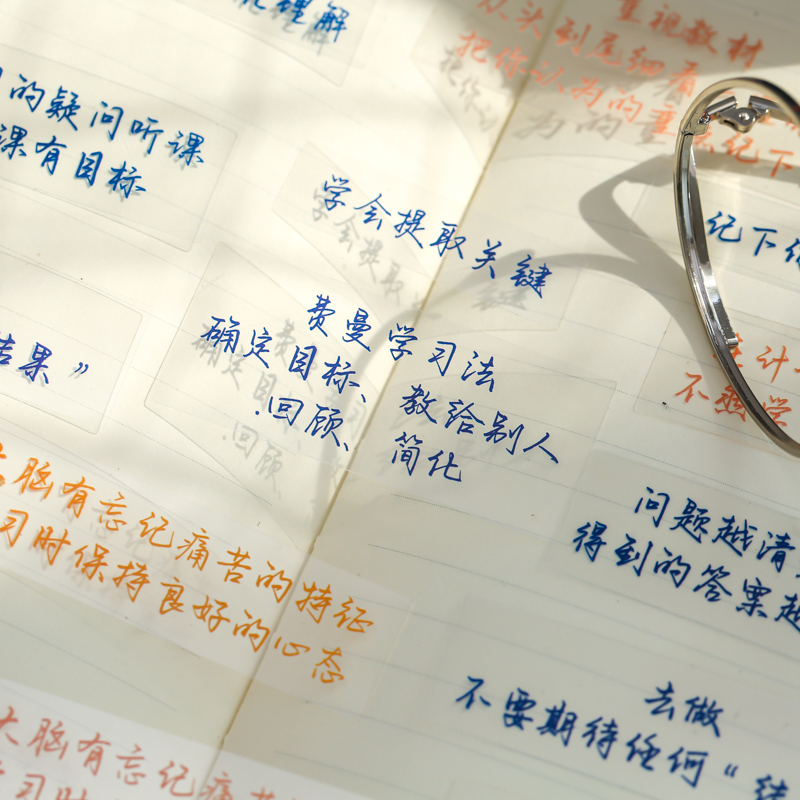 化理解
的疑问听课
课有目标
重视教材
从头到尾细看
把你认为的重点记下
学会提取关键
记下
费曼学习法
确定目标、教给别人
回顾、简化
结果”
不熟学
大脑有忘记痛苦的特征
习时保持良好的心态
问题越清
得到的答案越
去做
不要期待任何“结
大脑有忘记痛苦
习时